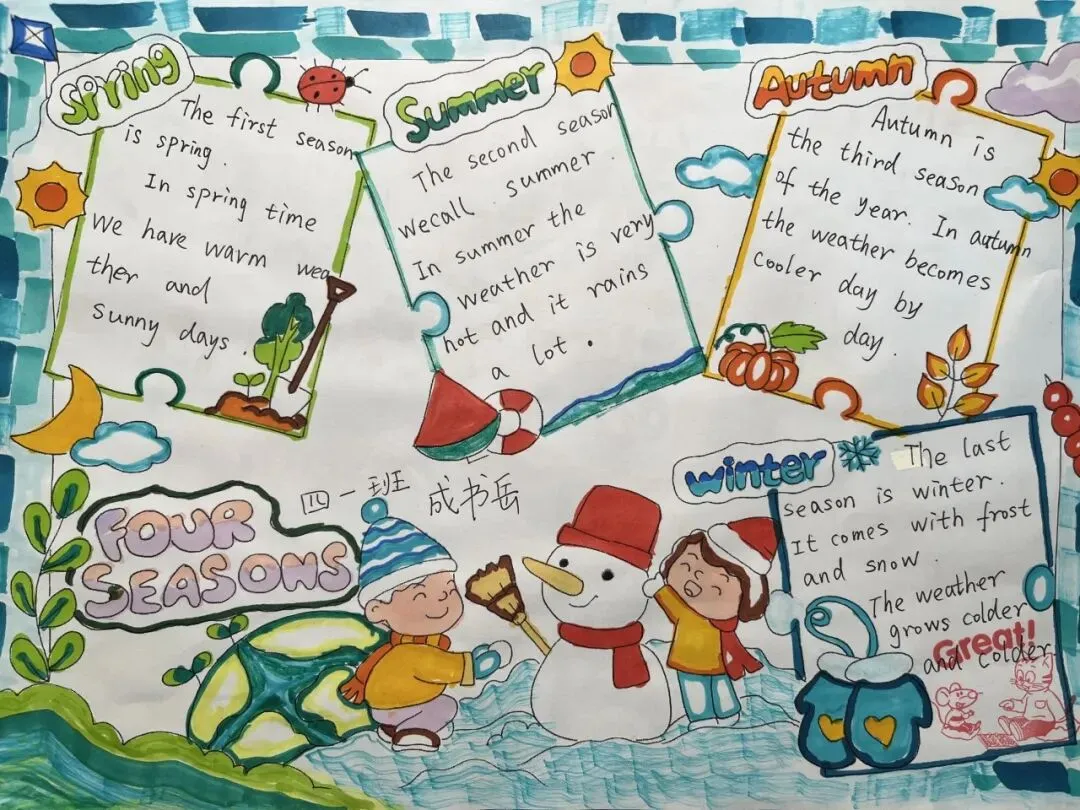 Spring
The first season
is spring.
In spring time
we have warm wea
ther and
sunny days.
Summer
The second season
wecall summer.
In summer the
weather is very
hot and it rains
a lot.
Autumn
Autumn is
the third season
of the year. In autumn
the weather becomes
cooler day by
day.
四一班 成书岳
FOUR
SEASONS
winter
The last
season is winter.
It comes with frost
and snow.
The weather
grows colder
and colder.
Great!